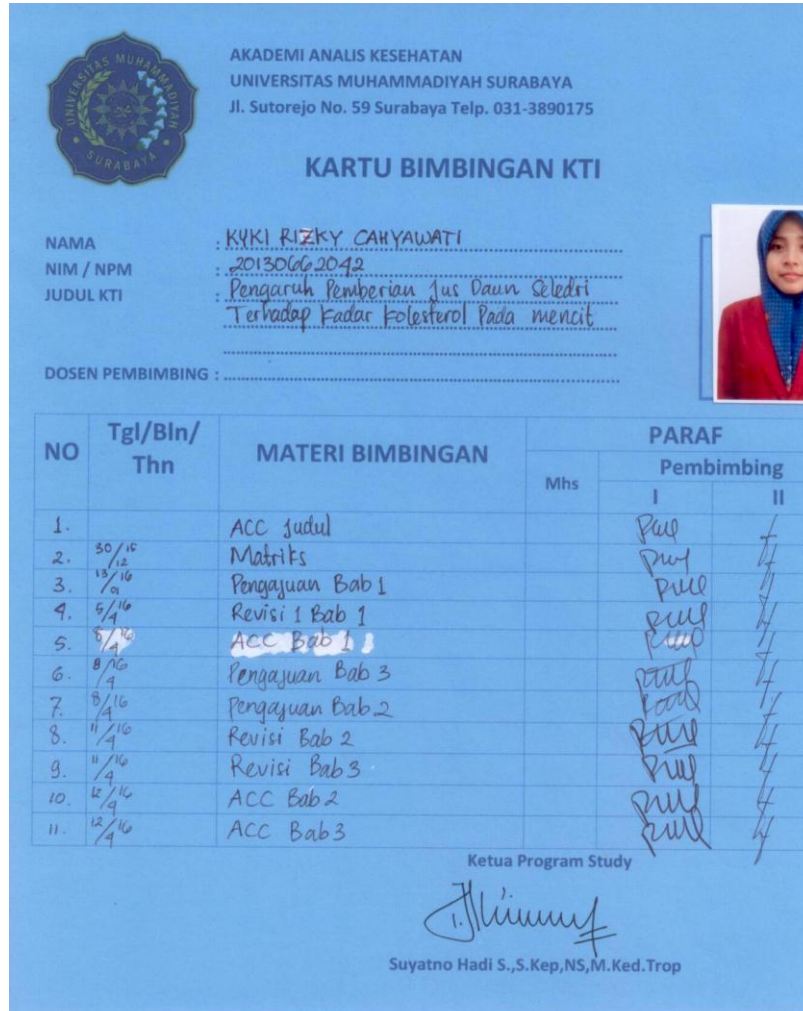 UNIVERSITAS MUHAMMADIYAH
SURABAYA
AKADEMI ANALIS KESEHATAN
UNIVERSITAS MUHAMMADIYAH SURABAYA
Jl. Sutorejo No. 59 Surabaya Telp. 031-3890175
KARTU BIMBINGAN KTI
NAMA : KYKI RIZKY CAHYAWATI
NIM / NPM : 20130662042
JUDUL KTI : Pengaruh Pemberian Jus Daun Seledri
Terhadap Kadar Kolesterol Pada mencit
DOSEN PEMBIMBING :
NO Tgl/Bln/Thn MATERI BIMBINGAN PARAF
Mhs Pembimbing
I II
1. ACC Judul
2. 30/12 15 Matriks
3. 13/01 16 Pengajuan Bab 1
4. 5/4 16 Revisi 1 Bab 1
5. 8/4 16 ACC Bab 1
6. 8/4 16 Pengajuan Bab 3
7. 8/4 16 Pengajuan Bab 2
8. 11/4 16 Revisi Bab 2
9. 11/4 16 Revisi Bab 3
10. 12/4 16 ACC Bab 2
11. 12/4 16 ACC Bab 3
Ketua Program Study
Suyatno Hadi S.,S.Kep,NS,M.Ked.Trop